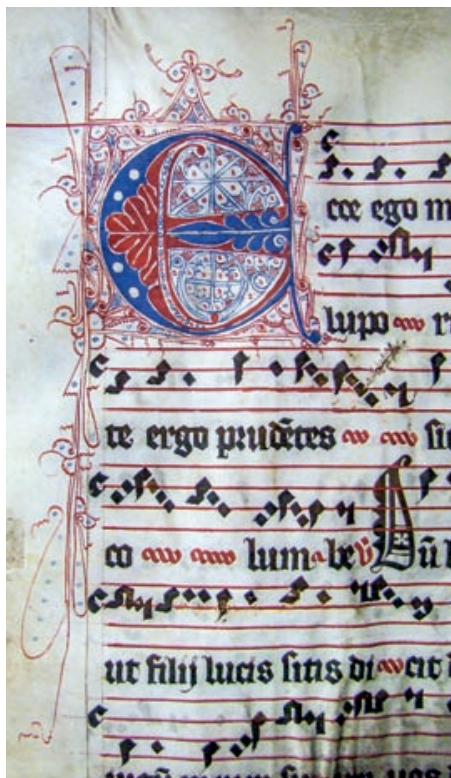 Ecce ego m
lupo r
te ergo prudētes si
co lum be ℣ Dū l
ut filij lucis sitis di cit